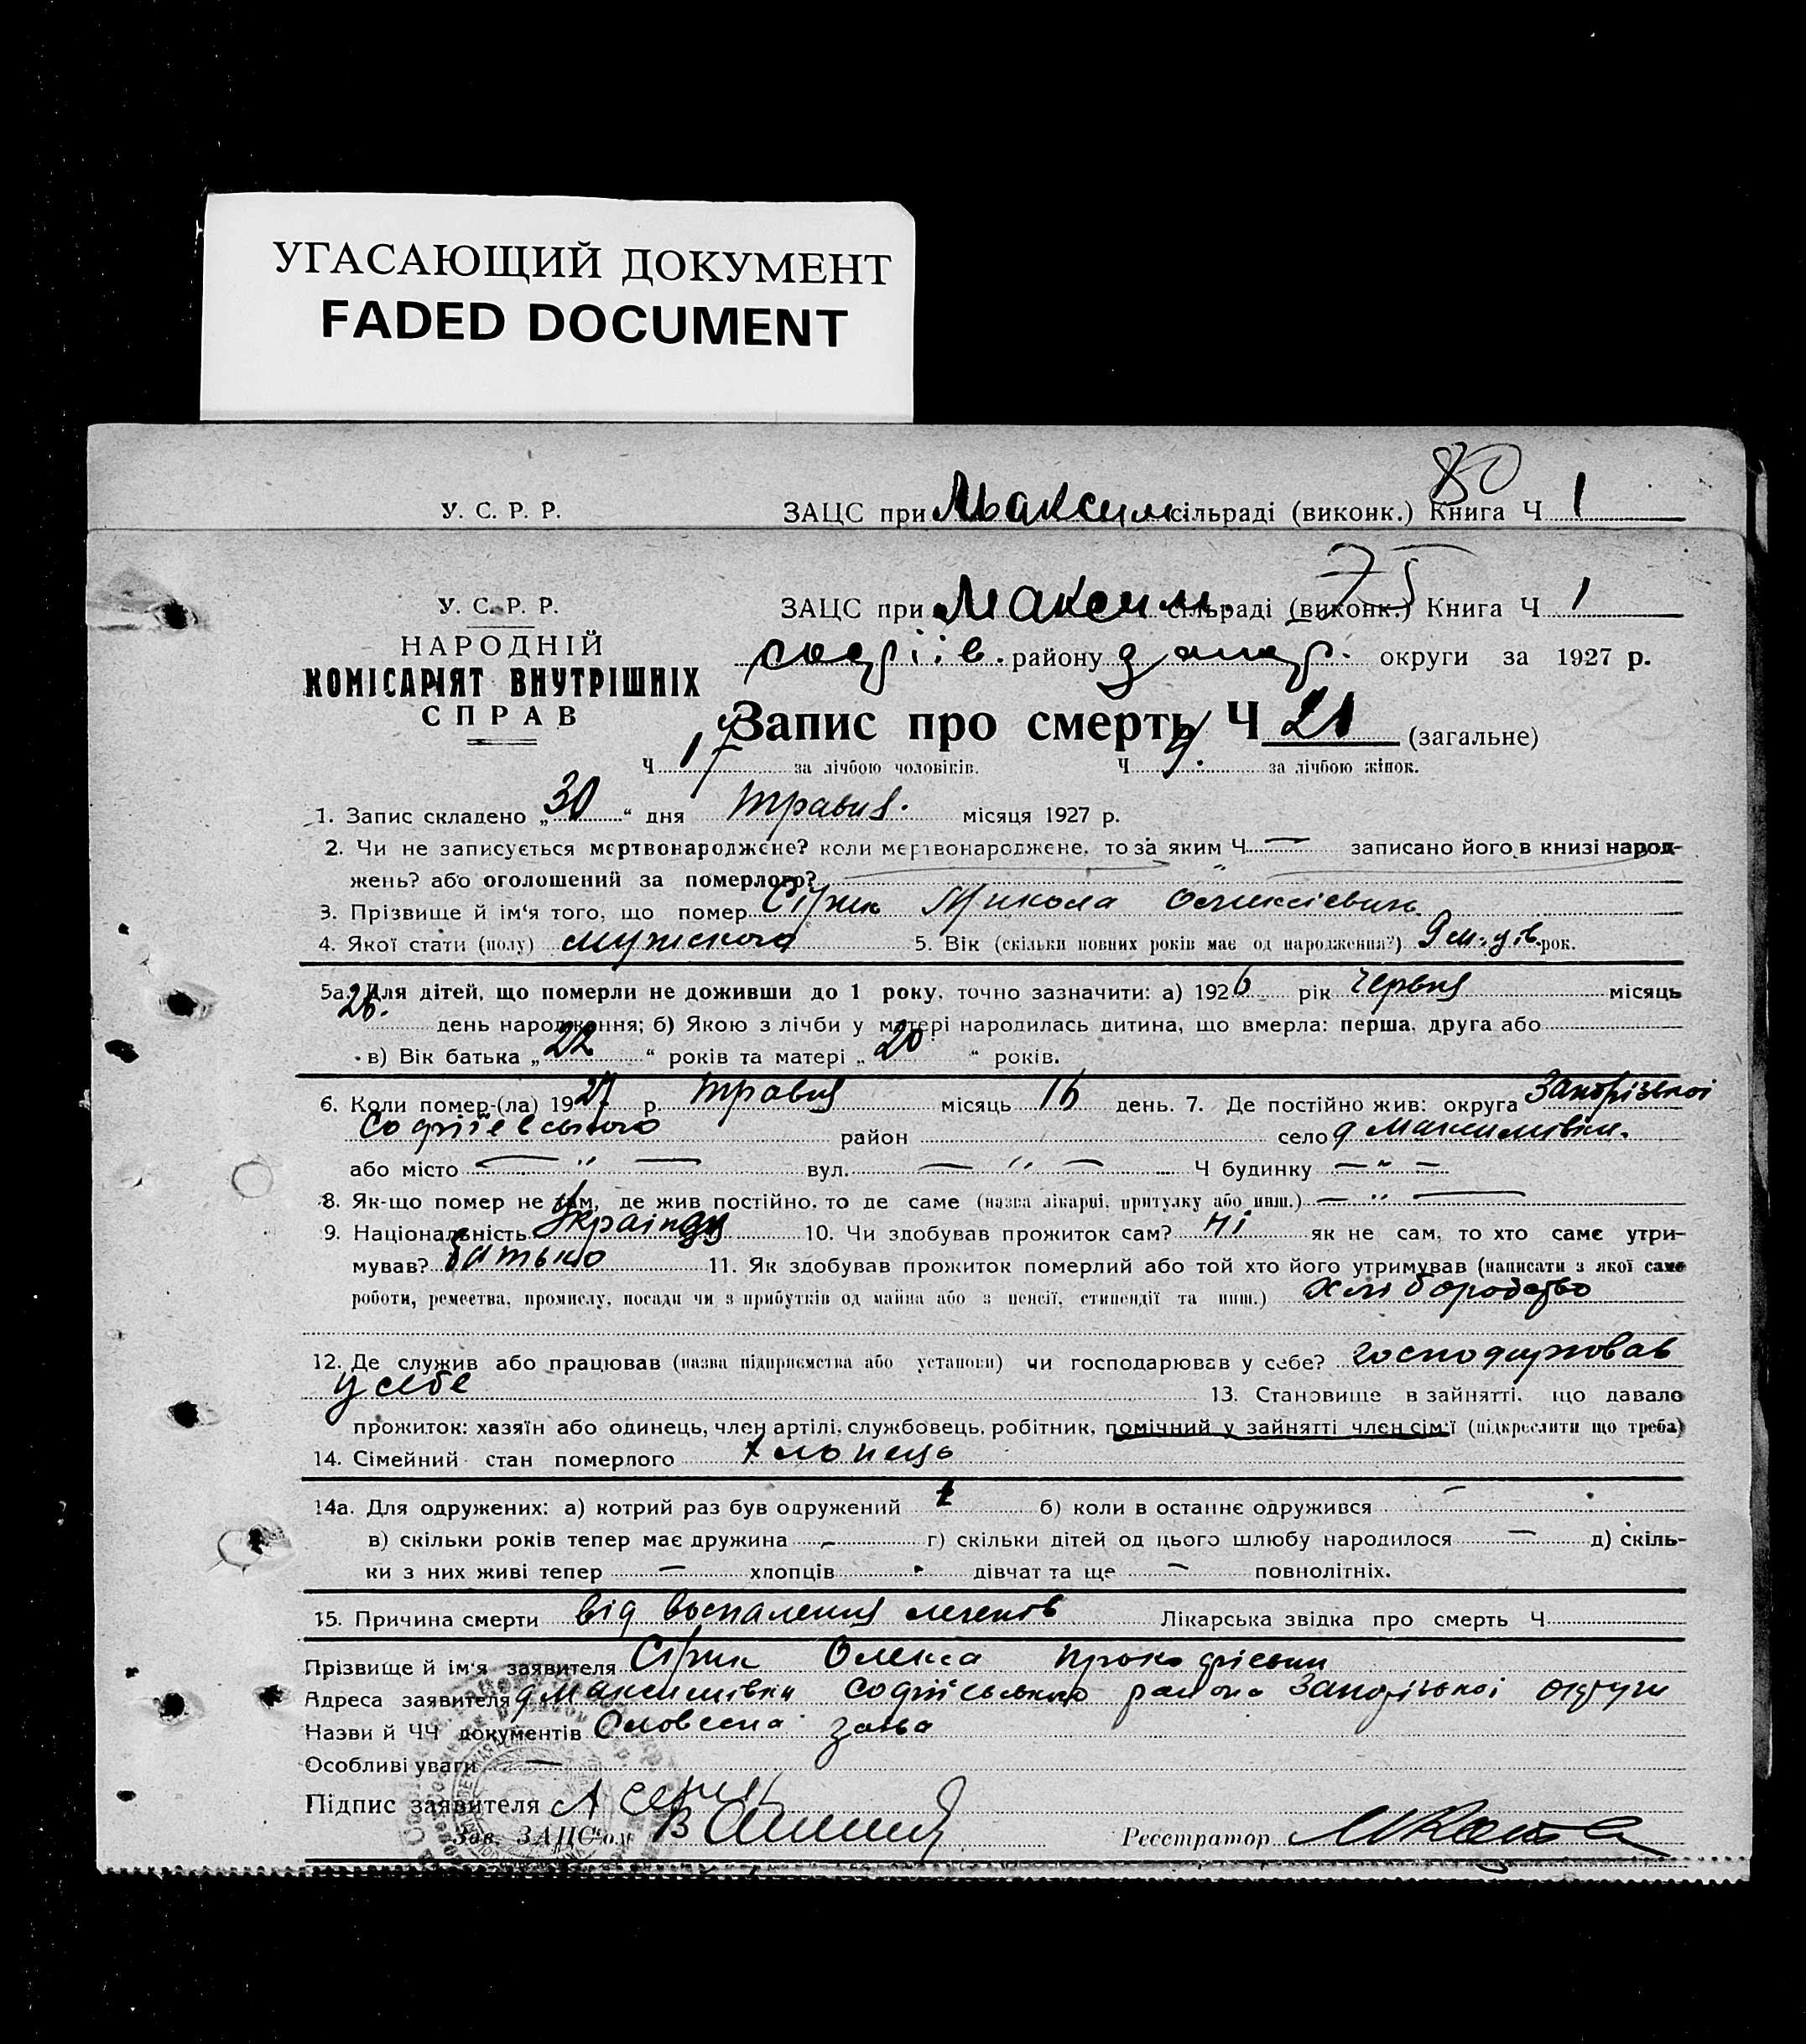 УГАСАЮЩИЙ ДОКУМЕНТ
FADED DOCUMENT
80
У. С. Р. Р. ЗАЦС при Максим. сільраді (виконк.) Книга Ч 1
75
У. С. Р. Р. ЗАЦС при Максим. сільраді (виконк.) Книга Ч 1
НАРОДНІЙ
софіїв. району Запор. округи за 1927 р.
КОМІСАРІЯТ ВНУТРІШНІХ
СПРАВ
Запис про смерть Ч 21 (загальне)
Ч 17 за лічбою чоловіків. Ч 4. за лічбою жінок.
1. Запис складено „30“ дня травня. місяця 1927 р.
2. Чи не записується мертвонароджене? коли мертвонароджене, то за яким Ч — записано його в книзі народ-
жень? або оголошений за померлого?
3. Прізвище й ім‘я того, що помер Сірик Микола Олексієвич
4. Якої стати (полу) мужского 5. Вік (скільки повних років має од народження?) 9 м. рок.
5а. Для дітей, що померли не доживши до 1 року, точно зазначити: а) 1926 рік Червня місяць
26. день народження; б) Якою з лічби у матері народилась дитина, що вмерла: перша, друга або
в) Вік батька „22“ років та матері „20“ років.
6. Коли помер-(ла) 1927 р. травня місяць 16 день. 7. Де постійно жив: округа Запорізької
Софіївського район село д Максимівки.
або місто — „ — вул. — „ — Ч будинку — „ —
8. Як-що помер не там, де жив постійно, то де саме (назва лікарні, притулку або инш.) — „ —
9. Національність Українець 10. Чи здобував прожиток сам? ні як не сам, то хто саме утри-
мував? батько 11. Як здобував прожиток померлий або той хто його утримував (написати з якої саме
роботи, ремества, промислу, посади чи з прибутків од майна або з пенсії, стипендії та инш.) Хліборобство
12. Де служив або працював (назва підприємства або установи) чи господарював у себе? господарював
у себе 13. Становище в зайнятті, що давало
прожиток: хазяїн або одинець, член артілі, службовець, робітник, помічний у зайнятті член сім‘ї (підкреслити що треба)
14. Сімейний стан померлого хлопець
14а. Для одружених: а) котрий раз був одружений б) коли в останнє одружився —
в) скільки років тепер має дружина — г) скільки дітей од цього шлюбу народилося — д) скіль-
ки з них живі тепер — хлопців дівчат та ще — повнолітніх.
15. Причина смерти від воспаления легенів Лікарська звідка про смерть Ч
Прізвище й ім‘я заявителя Сірик Олекса Прокофієвич
Адреса заявителя д Максимівки Софіївського района Запорізької округи
Назви й ЧЧ документів Словесна заява
Особливі уваги —
Підпис заявителя А Серик
Зав. ЗАЦС‘ом Реєстратор